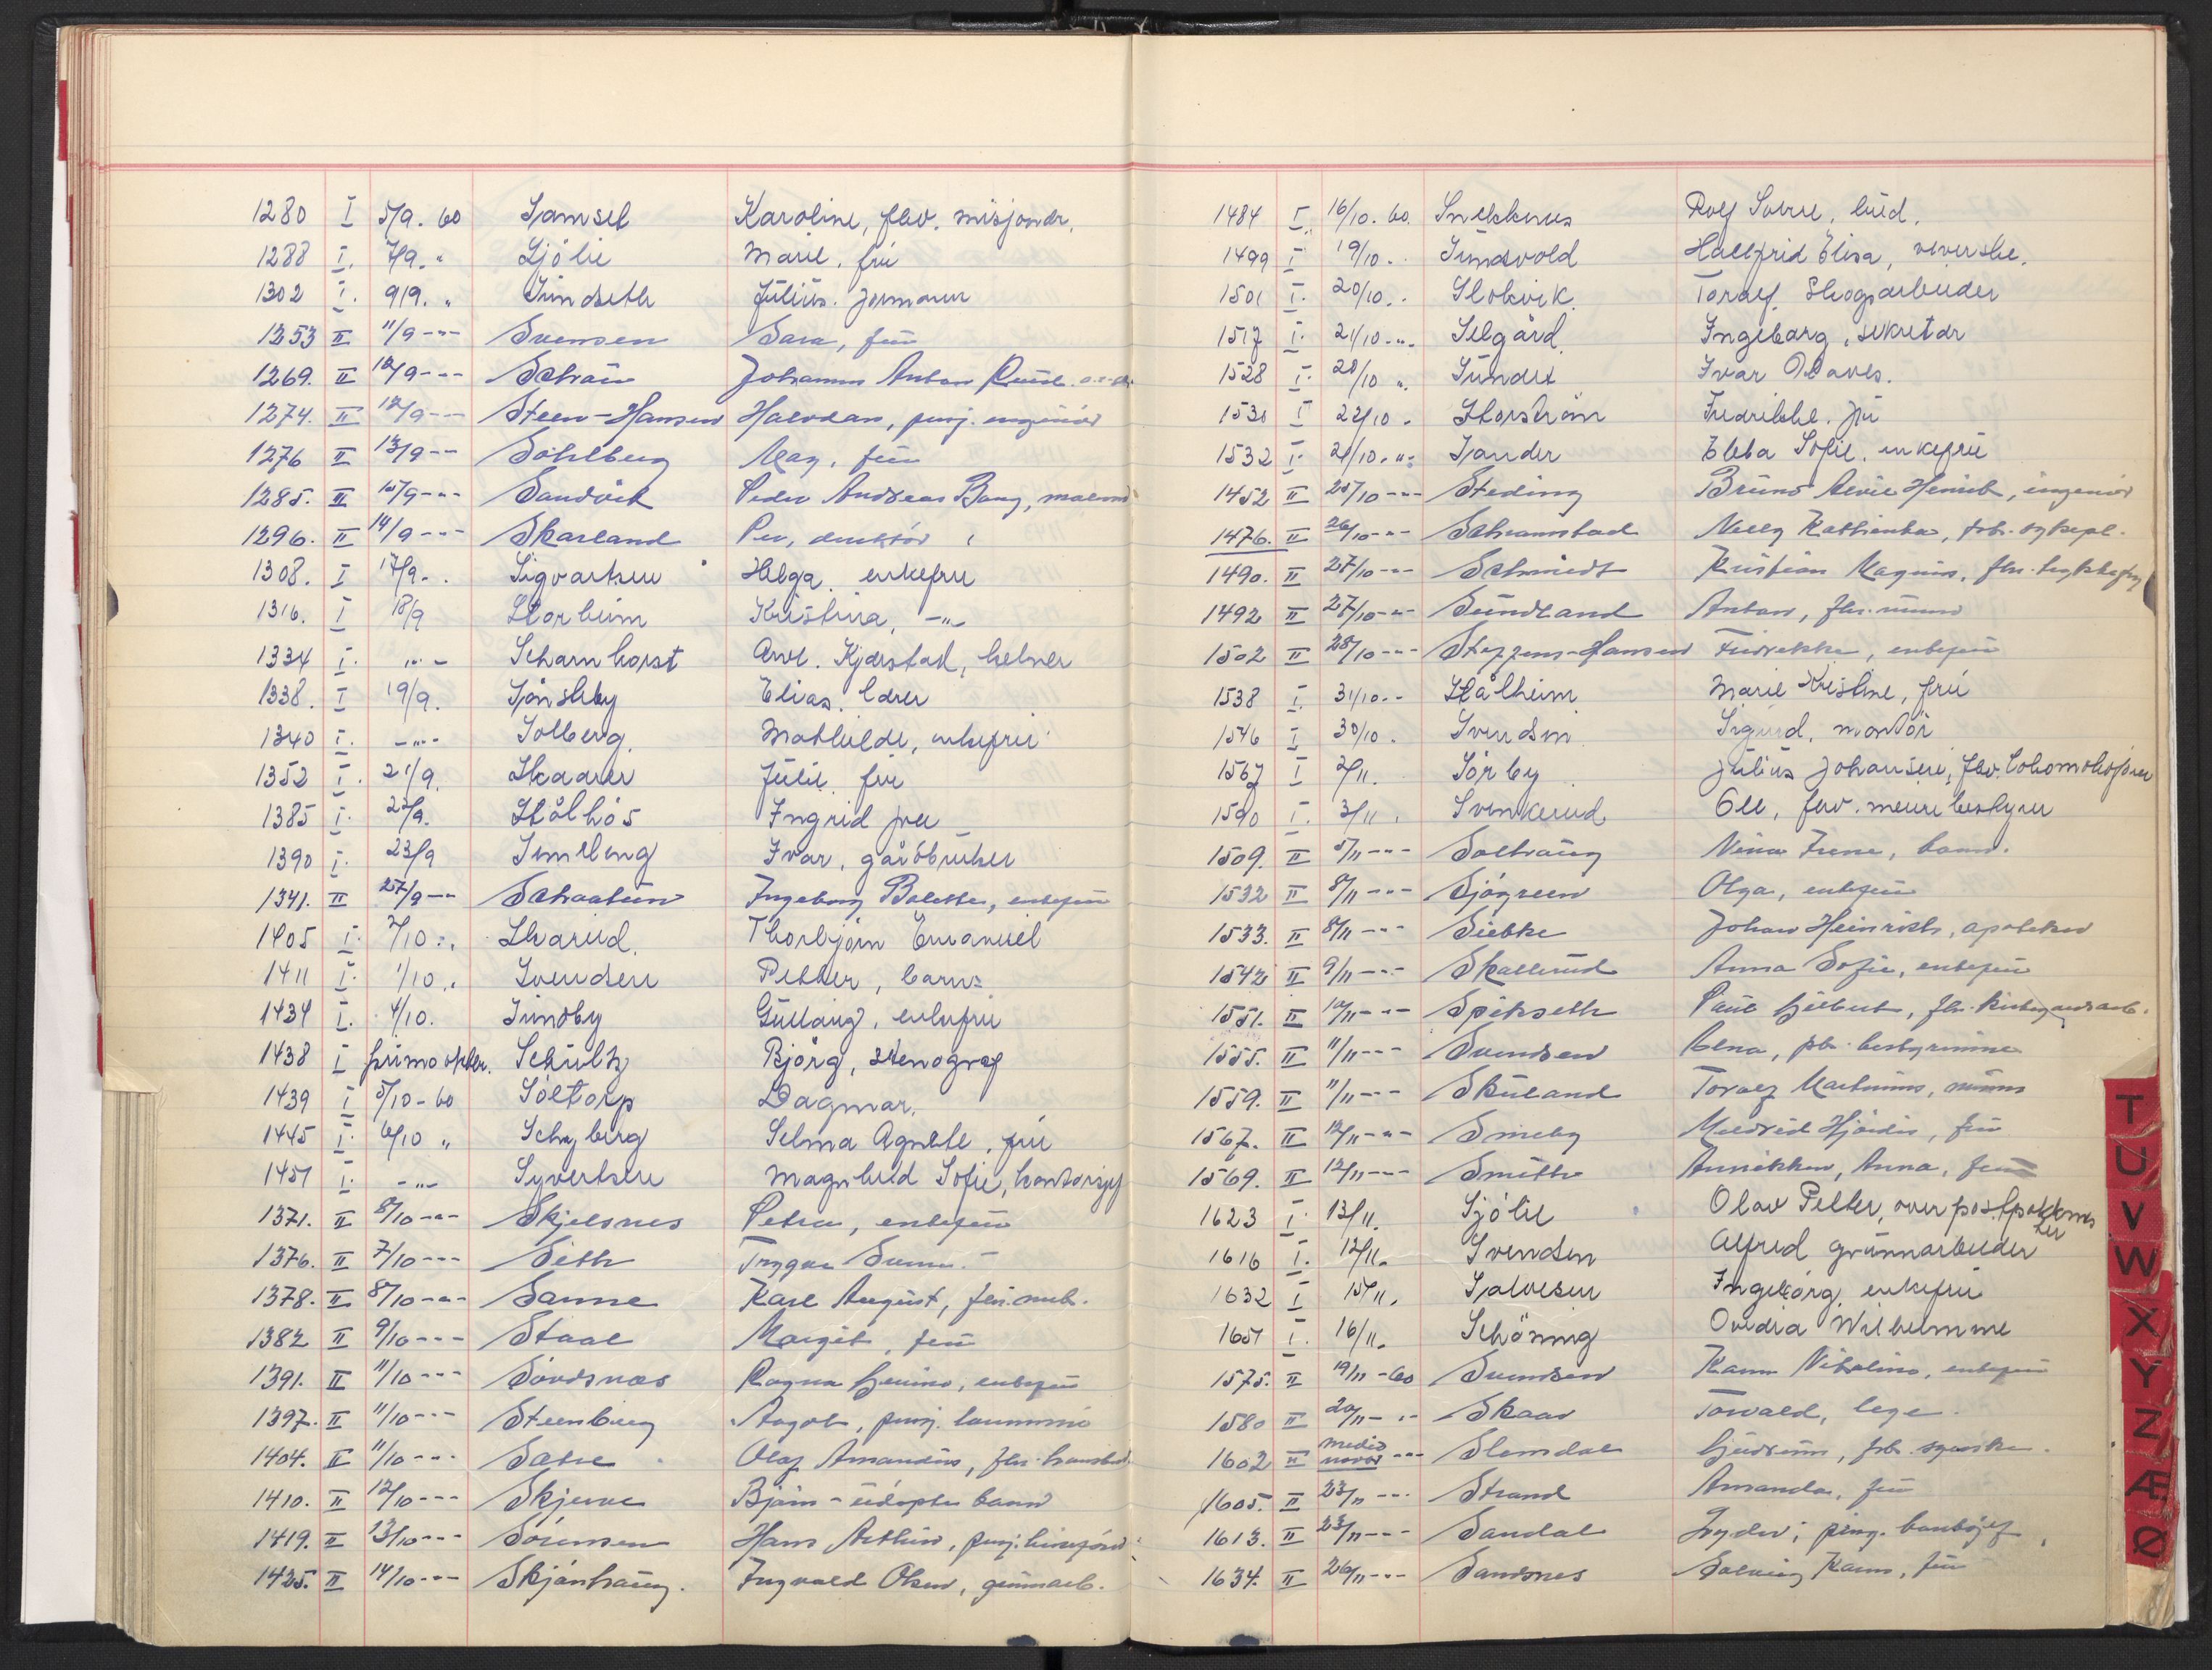 1280 I 5/9. 60 Samset Karoline, fhv. misjonær.
1288 I. 7/9. " Sjölie Marie, frü
1302 I. 9/9. " Sündseth Jülius.
1253 II 11/9 -"- Svensen Sara, frü
1269. II 12/9 -"- Johannes Anton
1274. II 12/9 -"- Steen-Hansen Halvdan, pensj. ingeniör
1276 II 13/9 -"- Söhlberg Mag, frü
1285. II 15/9 -"- Sandvik Peder Andreas Bang,
1296. II 14/9 -"- Skarland Per, direktör
1308. I 17/9 - . Sigvartsen Helga enkefrü
1316. I 18/9 Storheim Kristina, -"-
1334 I. -"- Scharnhorst Arvl. Kjærstad, kelner
1338. I 19/9. Sönsteby Elias, lærer
1340 I. -"- Solberg. Mathilde, enkefrü
1352 I. 21/9. Skaarer Jülie frü
1385 I. 22/9. Stålhös Ingrid frü
1390 I. 23/9 Simeleng Ivar, gårdbrüker
1341. II 25/9 -"- Schaatün Ingeborg Bolette, enkefrü
1405 I. 2/10 . Skarüd. Thorbjörn Emanüel
1411 I. 1/10 . Svendsen Petter, barn
1434 I. 4/10. Sündby Güllaüg, enkefrü
1438 I primo oktbr. Schültz Björg, stenograf
1439 I 5/10 - 60 Söltorp Dagmar.
1445 I. 6/10 " Schyberg Selma Agnete, frü
1451 I. -"- Syvertsen Magnhild Sofie,
1371. II 8/10 -"- Skjelsnes Petra, enkefrü
1376. II 7/10 -"- Seth Trygve
1378. II 8/10 -"- Sanne Karl Aügüst, fhv.
1382 II 9/10 -"- Staal Margit, frü
1391. II 11/10 -"- Sördsnæs Ragna Gürine, enkefrü
1397. II 11/10 -"- Steenberg Aagot, pensj.
1404. II 11/10 -"- Sætre Olaf Amandüs, fhv.
1410. II 12/10 -"- Skjerve Björn - üdöpte barn
1419. II 13/10 -"- Sörensen Hans Arthür, pensj.
1425. II 14/10 -"- Skjönhaüg. Ingvald Olsen, grünnarb.
1484 I. 16/10. 60. Snekknes Rolf Sobre,
1499 I. 19/10 . Sündsvold Hallfrid Elisa, veverske.
1501 I. 20/10 . Slokvik Toralf, skogsarbeider
1517 I. 21/10 -"- Selgård Ingeborg, sekretær
1528 I. 20/10 " Sündet Ivar Olaves.
1530 I 22/10 . Storström Fredrikke. frü
1532 I. 21/10 -"- Sander Ebba Sofie, enkefrü
1452 II 25/10 -"- Steding Brüno Alvic Heinrich, ingeniör
1476. II 26/10 -"- Schramstad Nelly Kathinka, frk. sykepl.
1490. II 27/10 -"- Schmidt Kristian Magnüs, fhv.
1492 II 27/10 -"- Sündland Anton, fhv. mürer
1502 II 28/10 -"- Steffens-Hansen Fredrikke, enkefrü
1538 I. 31/10 . Stålheim Marie Kristine, frü
1546 I 30/10 . Svendsen Sigürd, montör
1567 I 2/11. Sörby Jülius Johansen, fhv. lokomotivförer
1590 I. 3/11. Svinkerüd Ole, fhv. meieribestyrer
1509. II 5/11 -"- Solhaüg Nina Irene, barn.
1532 II 8/11 -"- Sjögreen Olga, enkefrü
1533. II 8/11 -"- Siebke Johan Heinrich, apoteker
1542 II 9/11 -"- Skallerüd Anna Sofie, enkefrü
1551. II 10/11 -"- Spikseth Paül Gilbert, fhv. kirkegårdsarb.
1555. II 11/11 -"- Svendsen Lena, frk. bestyrerinne
1559. II 11/11 -"- Sküland Toralf Martinius, mürer
1567. II 12/11 -"- Smeby Mildrid Hjördis, frü
1569. II 12/11 -"- Smith Annikken, Anna, frü
1623 I. 13/11. Sjölie Olav Petter, overpostpakkmester
1616 I. 12/11. Svendsen Alfred grünnarbeider
1632 I 15/11. Salvesen Ingeborg, enkefrü
1651 I. 16/11. Schöning Ovidia Wilhelmine
1575. II 19/11 - 60 Svendsen Karen Nikoline, enkefrü
1580 II 20/11 - . Skaar Torvald, lege.
1602 II medio novbr -"- Slemdal Güdrün, frk.
1605. II 23/11 -"- Strand Amanda, frü
1613. II 23/11 -"- Sandal Lyder, pensj. banksjef
1634. II 26/11 -"- Sandsnes Solveig Karen, frü
T
U
V
W
X
Y
Z
Æ
Ø